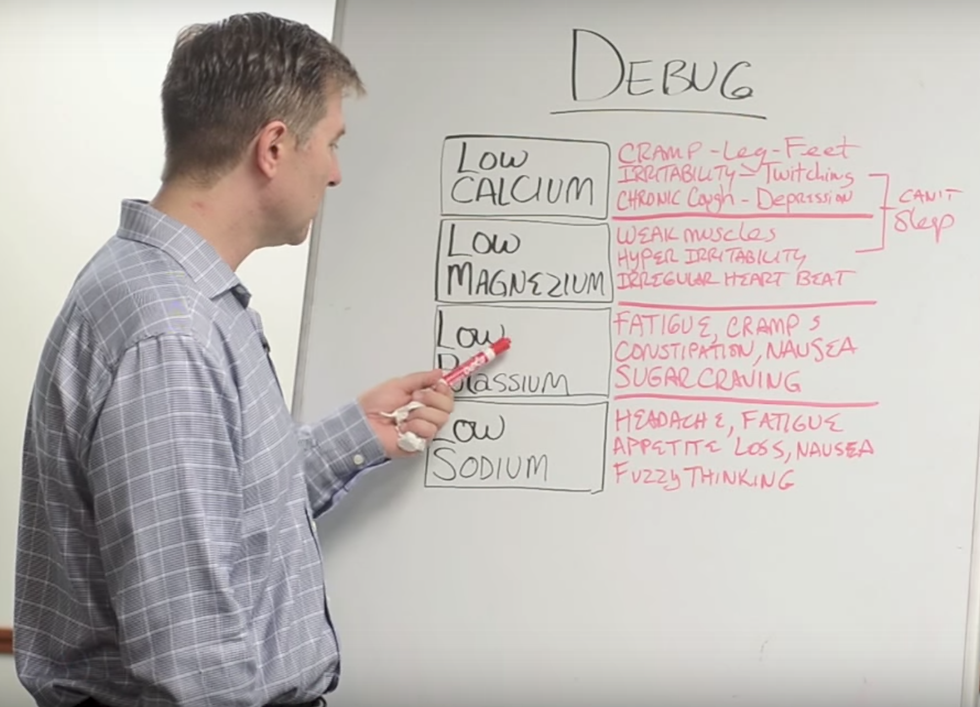 DEBUG
Low
CALCIUM
CRAMP - Leg - Feet
IRRITABILITY - Twitching
CHRONIC Cough - Depression
CAN'T
Sleep
Low
MAGNEZIUM
WEAK muscles
HYPER IRRITABILITY
IRREGULAR HEART BEAT
Low
FATIGUE, CRAMPS
CONSTIPATION, NAUSEA
SUGAR CRAVING
Low
SODIUM
HEADACHE, FATIGUE
APPETITE LOSS, NAUSEA
Fuzzy THINKING